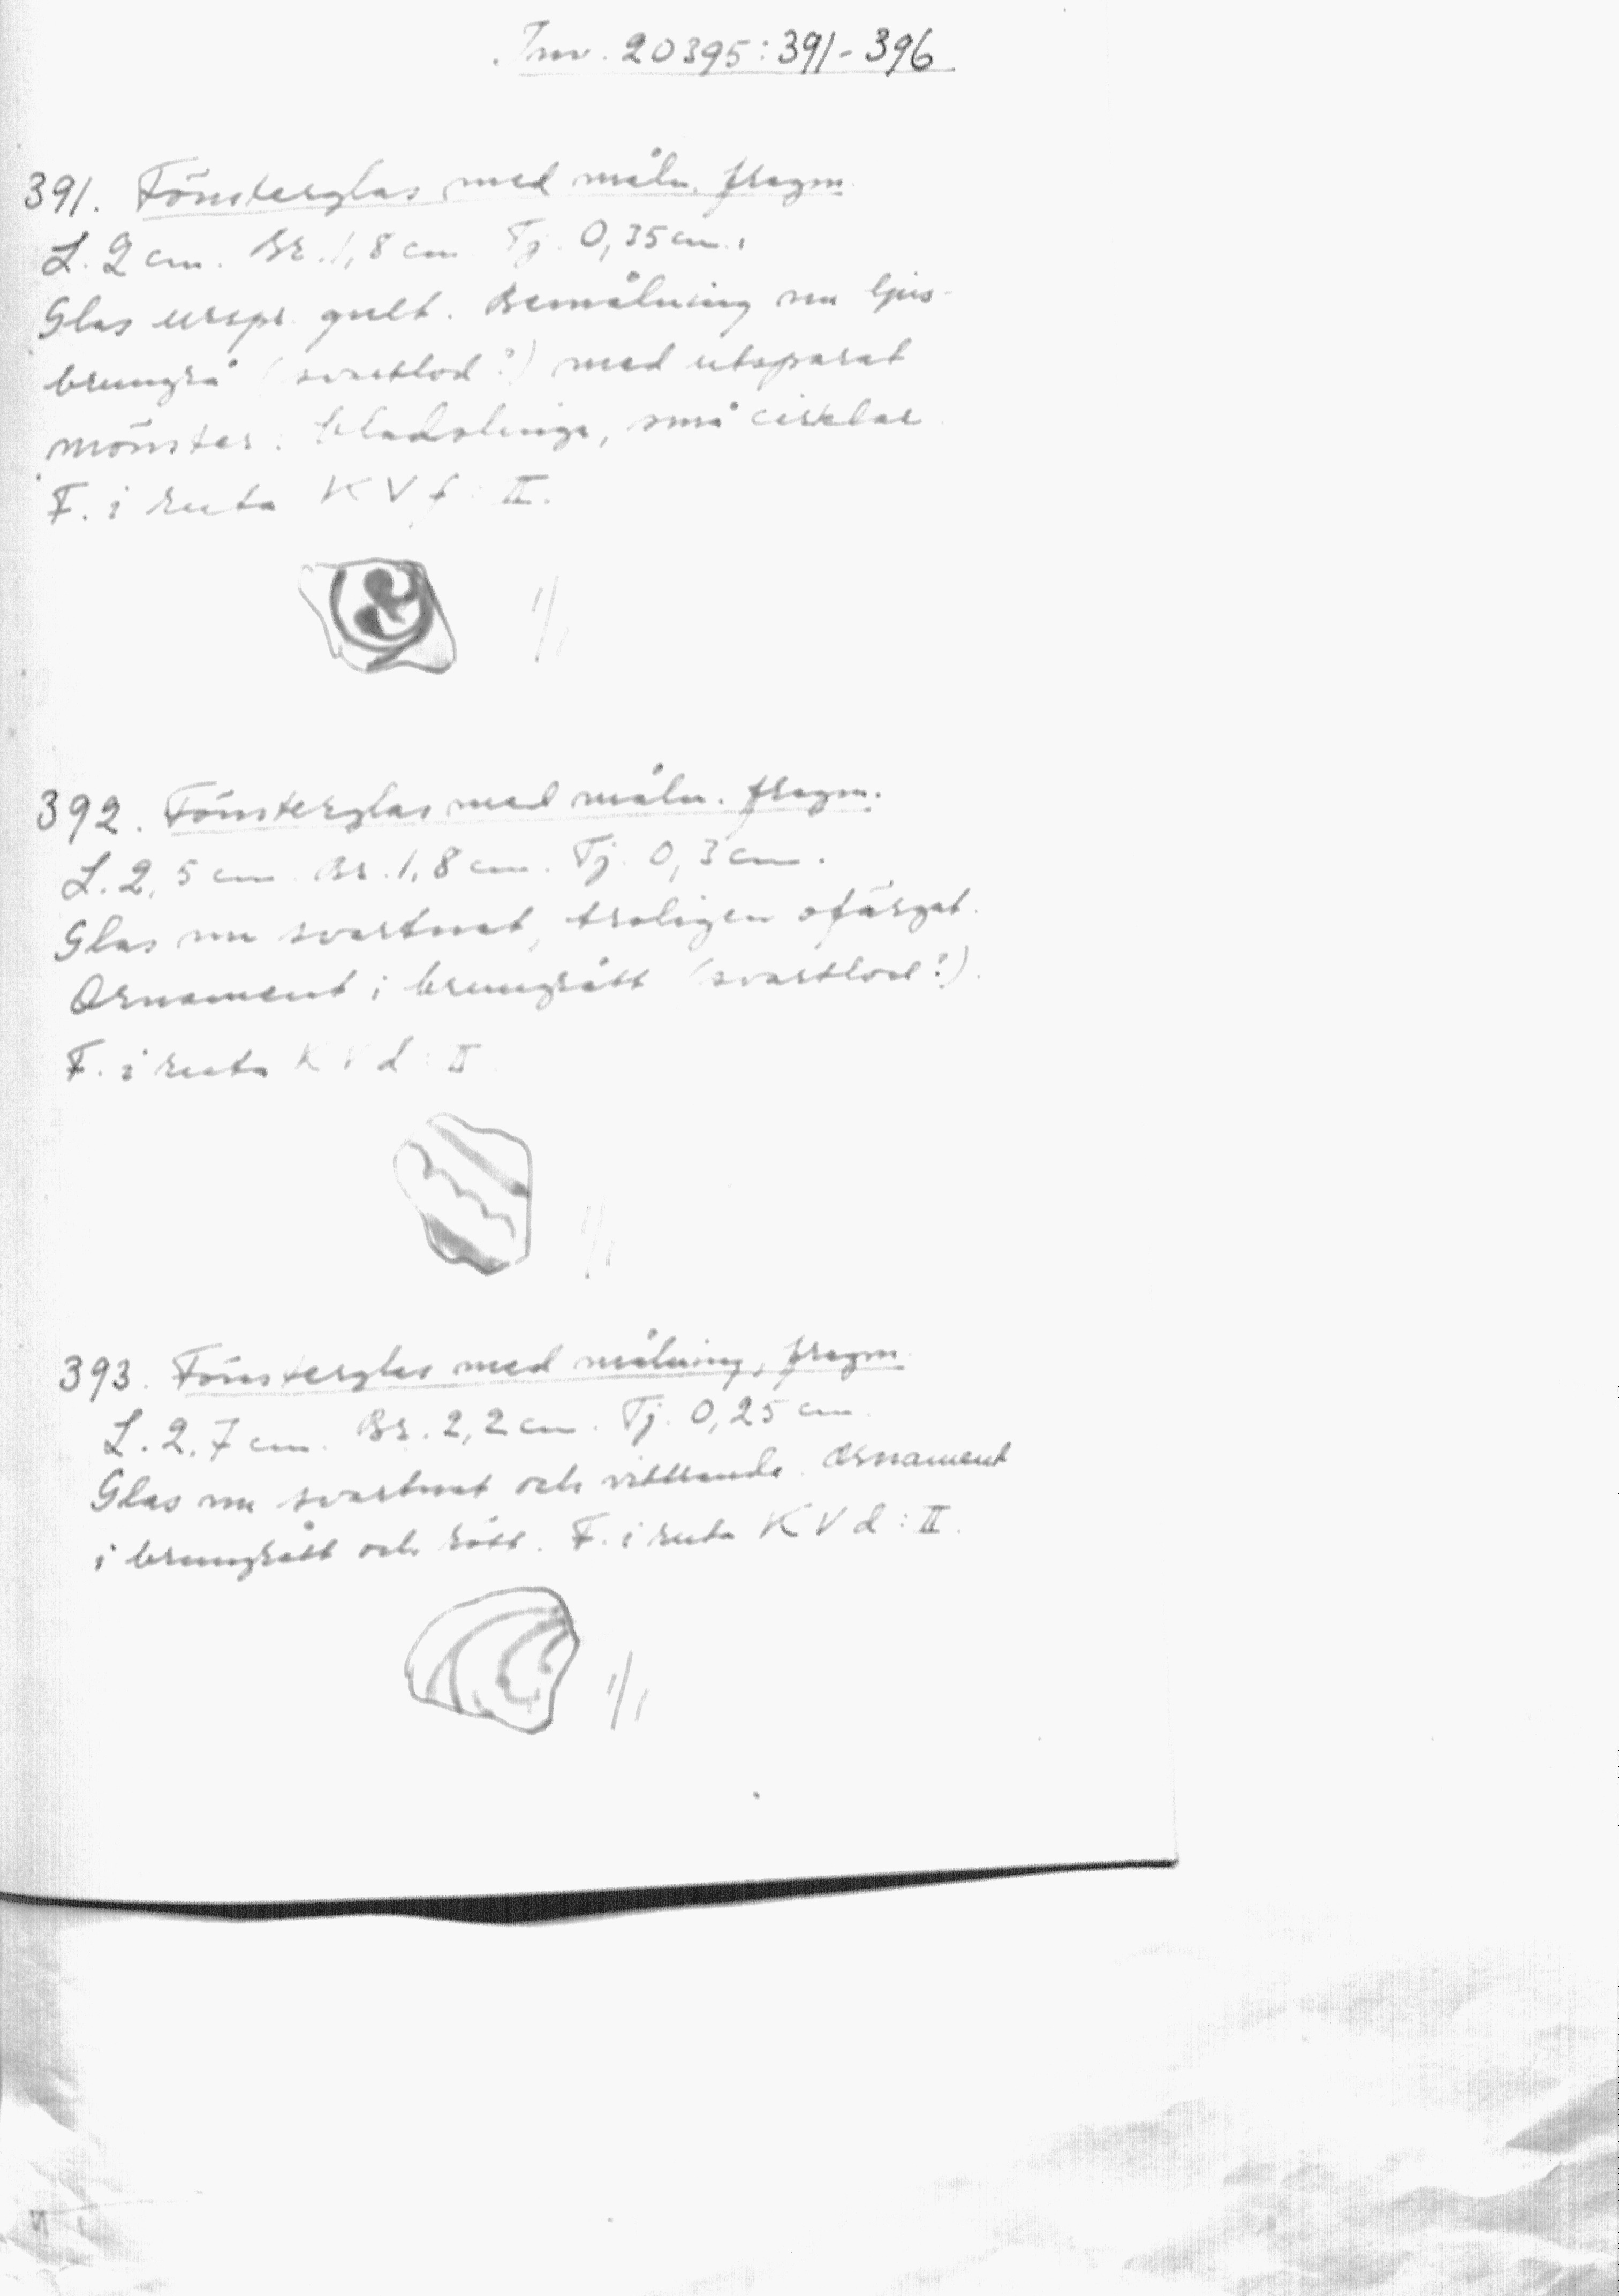 Inv. 20395:391-396
391. Fönsterglas med måln. fragm.
L. 2 cm. Br. 1,8 cm Tj. 0,35 cm.
Glas urspr. gult. Bemålning nu ljus-
brungrå (svartlod?) med utsparat
mönster: bladslinga, små cirklar.
F. i ruta K V f : II.
1/1
392. Fönsterglas med måln. fragm.
L. 2,5 cm Br. 1,8 cm. Tj. 0,3 cm.
Glas nu svartnat, troligen ofärgat.
Ornament i brungrått (svartlod?).
F. i ruta K V d : II
1/1
393. Fönsterglas med målning, fragm.
L. 2,7 cm. Br. 2,2 cm. Tj. 0,25 cm
Glas nu svartnat och vittrande. Ornament
i brungrått och rött. F. i ruta K V d : II.
1/1